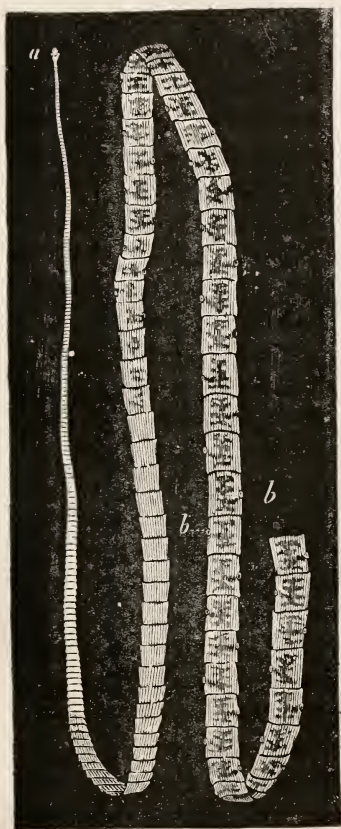 a
b
b